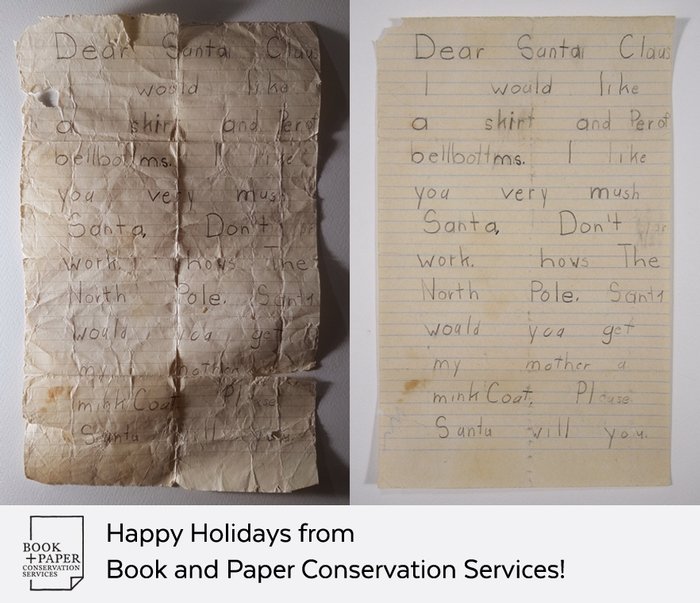 Dear Santa Claus
I would like
a skirt and Per of
bellbottms. I like
you very mush
Santa, Don't
work. hows The
North Pole. Santa
would you get
my mother
mink Coat. Please
Santa will you.
Dear Santa Claus
I would like
a skirt and Per of
bellbottms. I like
you very mush
Santa, Don't
work. hows The
North Pole. Santa
would you get
my mother a
mink Coat. Please
Santa will you.
BOOK
+PAPER
CONSERVATION
SERVICES
Happy Holidays from
Book and Paper Conservation Services!